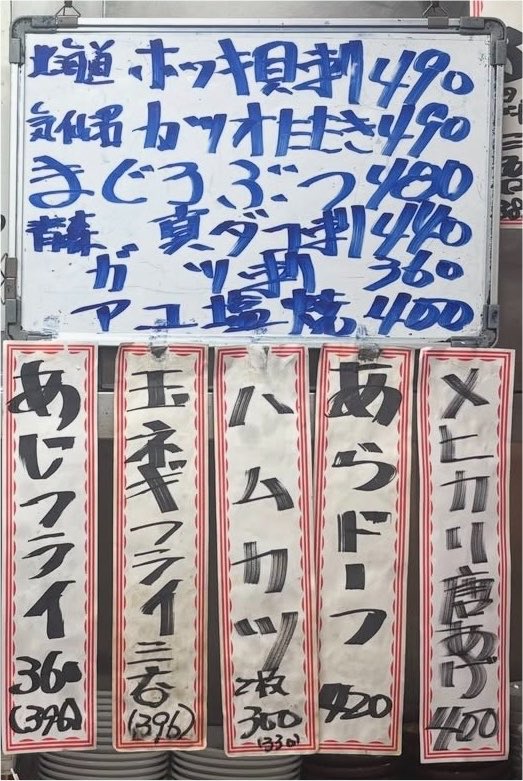 北海道 ホッキ貝刺 490
気仙沼 カツオたたき 490
まぐろぶつ 480
青森 真ダコ刺 440
ガツ刺 360
アユ塩焼 400
メヒカリ唐あげ 400
あらドーフ 420
ハムカツ 2枚 300 (330)
玉ネギフライ 三〇 (396)
あじフライ 360 (396)